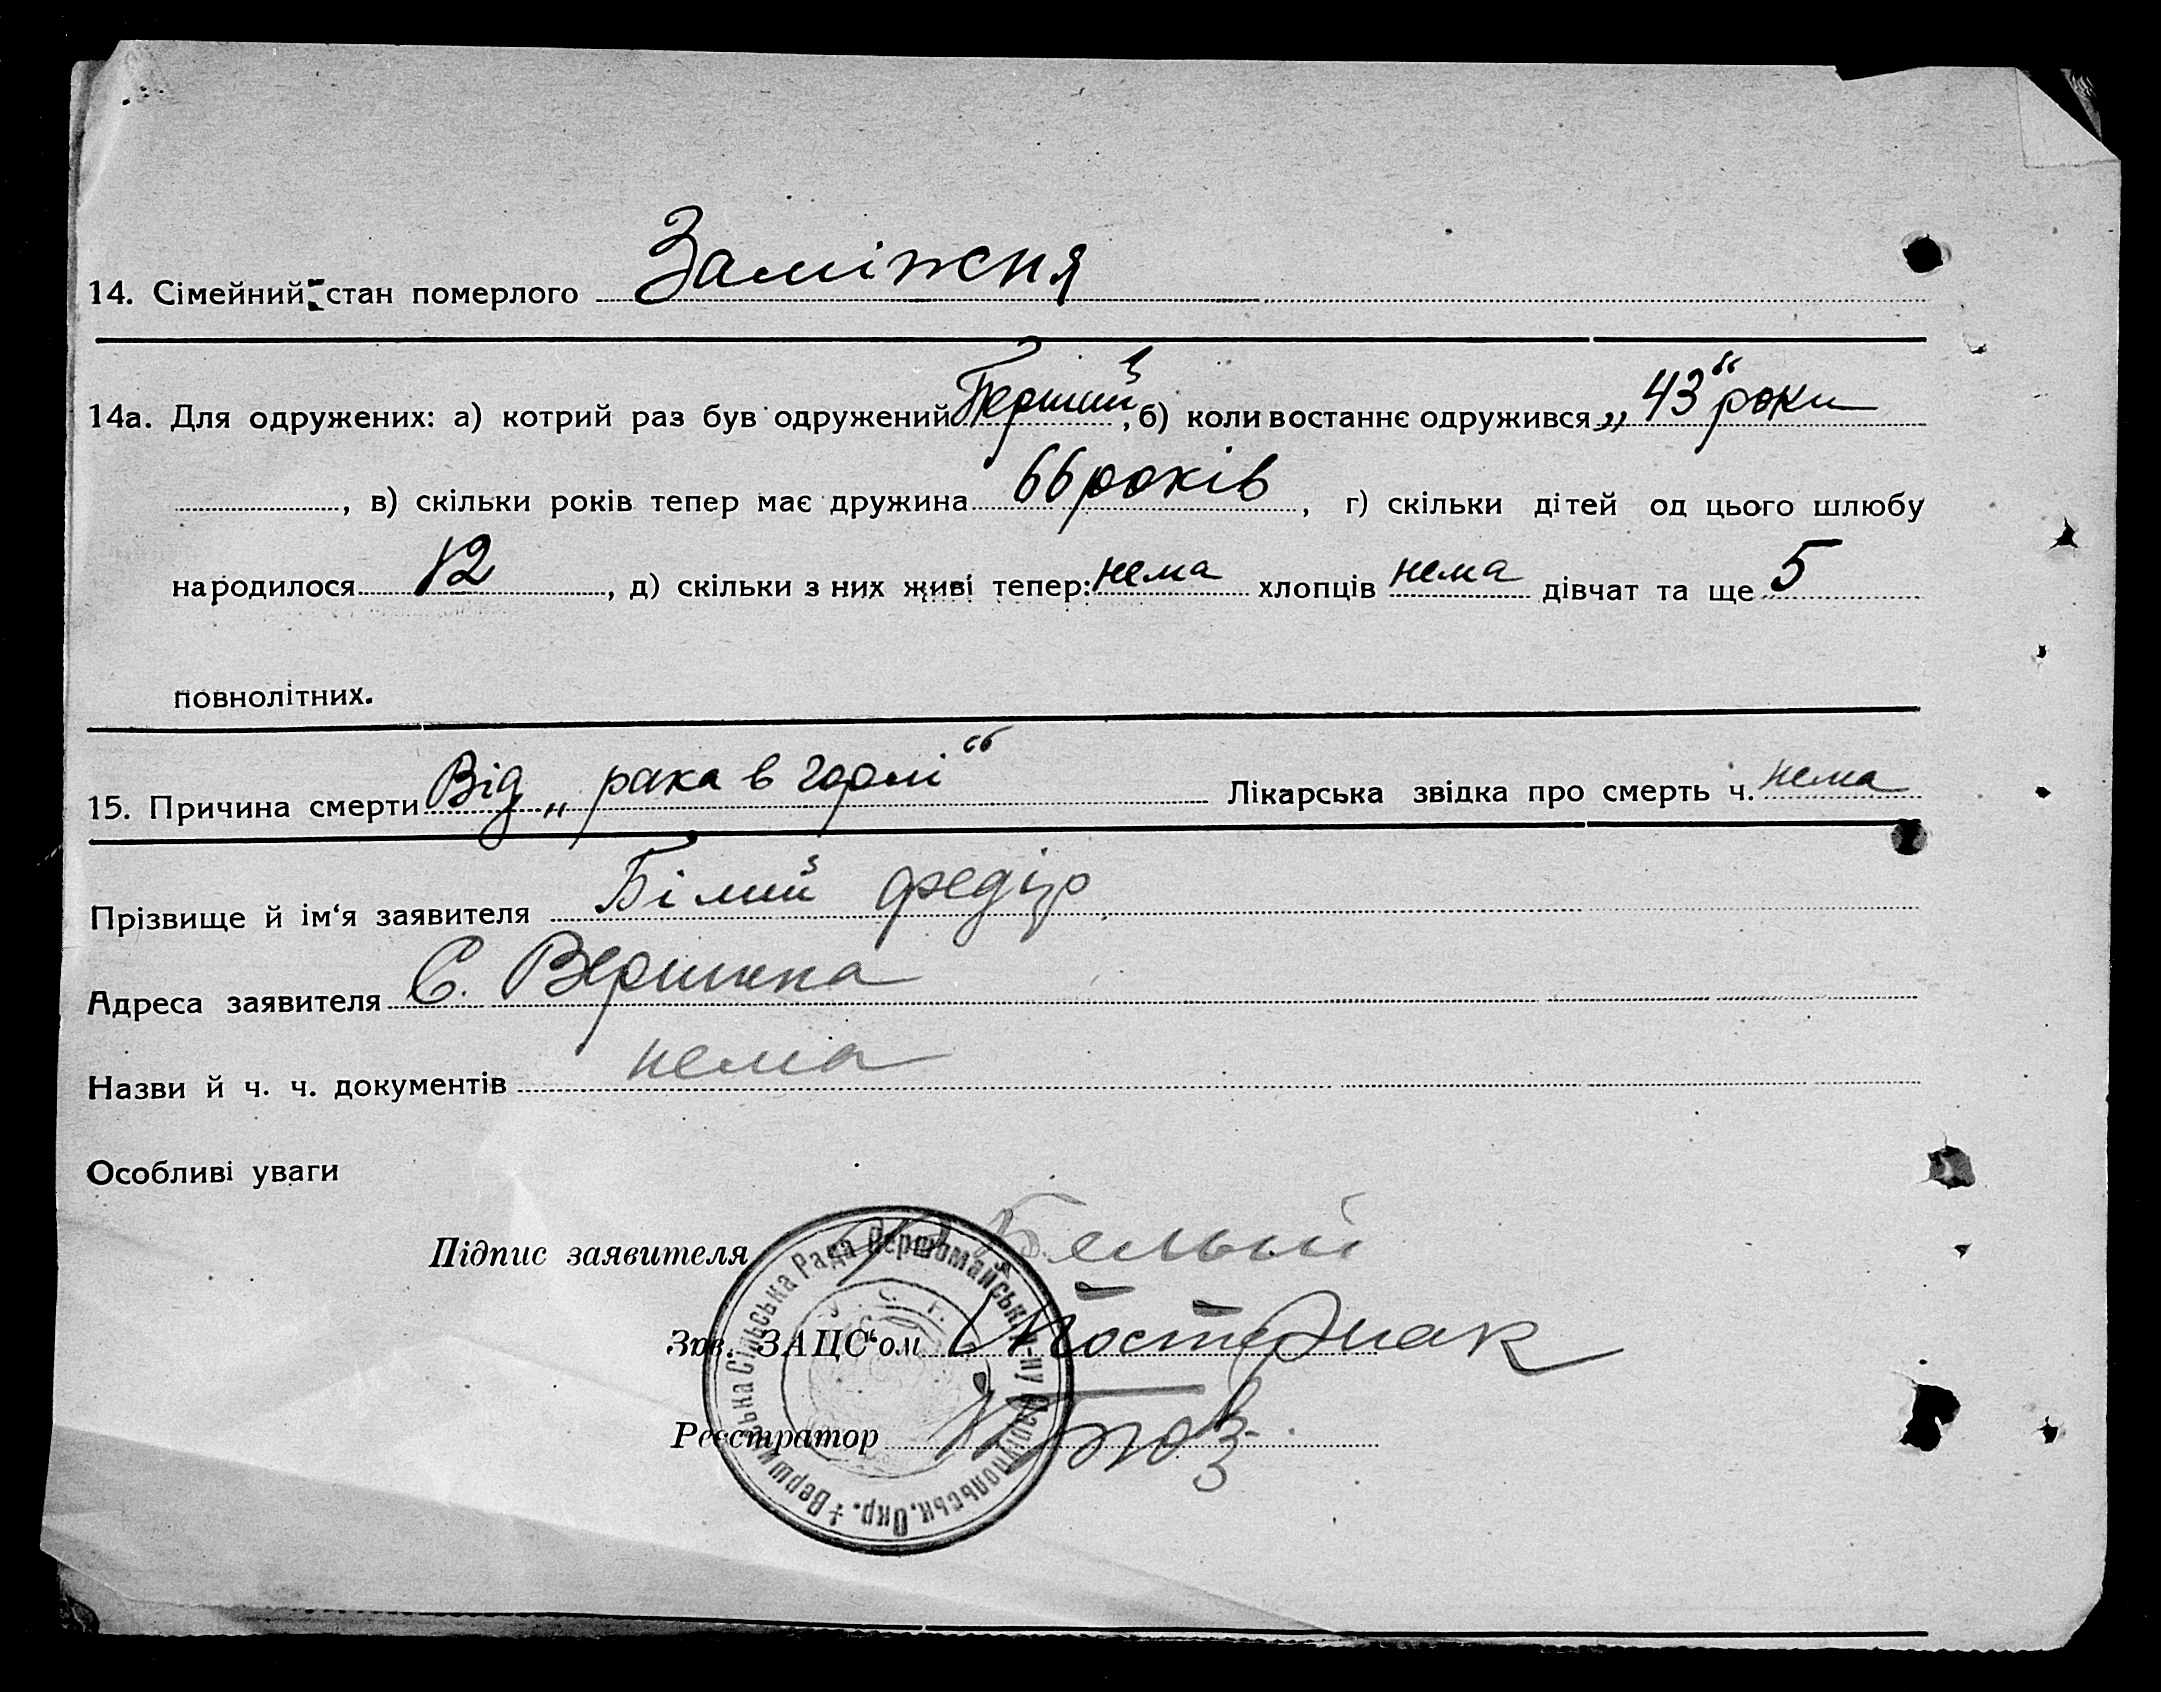 14. Сімейний стан померлого Заміжня
14а. Для одружених: а) котрий раз був одружений Перший, б) коли востаннє одружився „43“ роки
, в) скільки років тепер має дружина 66 років, г) скільки дітей од цього шлюбу
народилося 12, д) скільки з них живі тепер: нема хлопців нема дівчат та ще 5
повнолітних.
15. Причина смерти Від „рака в горлі“ Лікарська звідка про смерть ч. нема
Прізвище й ім‘я заявителя Білий Федір
Адреса заявителя С. Вершина
Назви й ч. ч. документів нема
Особливі уваги
Підпис заявителя Белый
Зав. ЗАЦС‘ом
Реєстратор
Вершинська Сільська Рада Першомайськ. р-ну Маріупольськ. Окр.
У. С. Р. Р.